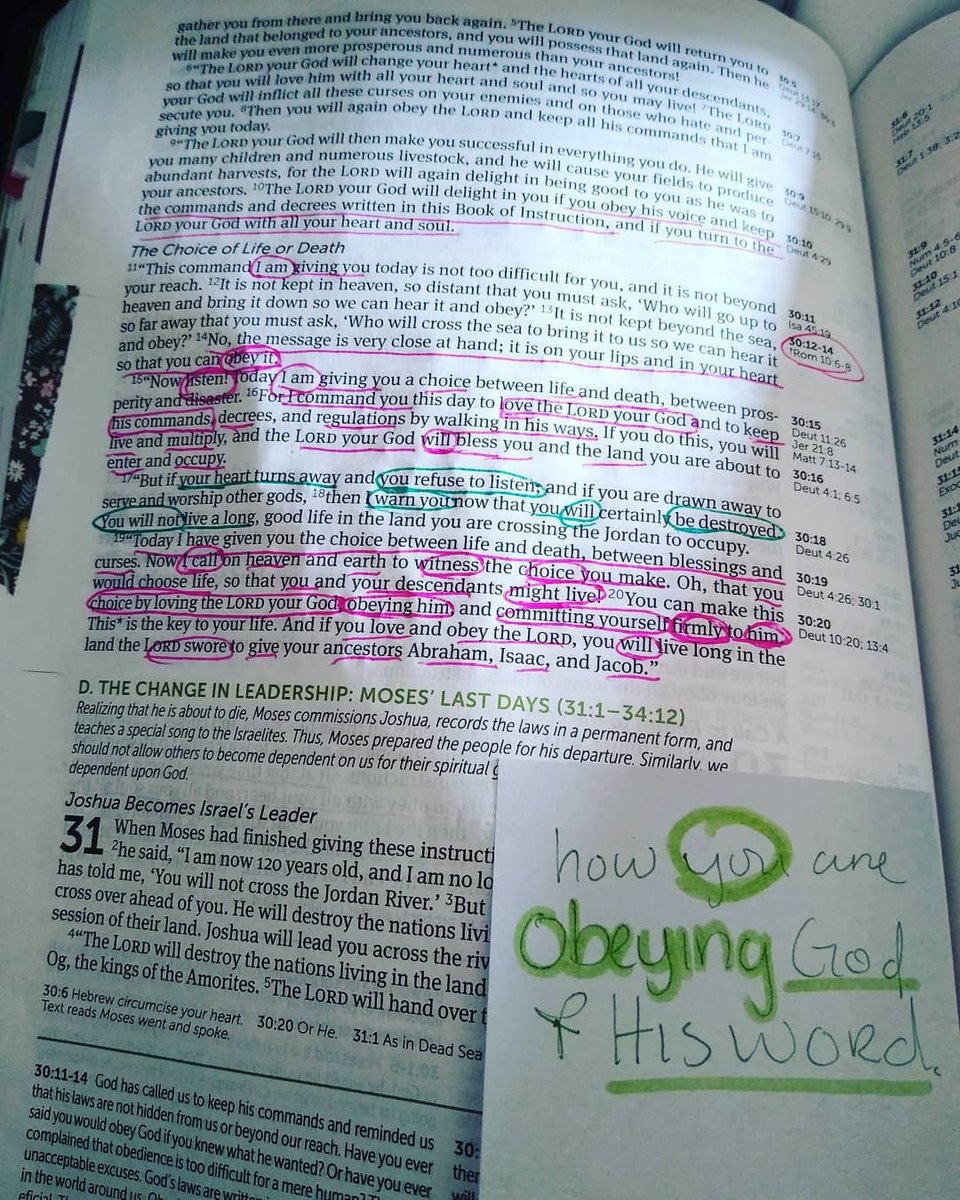 gather you from there and bring you back again. ⁵The LORD your God will return you to
the land that belonged to your ancestors, and you will possess that land again. Then he
will make you even more prosperous and numerous than your ancestors!
⁶“The LORD your God will change your heart* and the hearts of all your descendants,
so that you will love him with all your heart and soul and so you may live! ⁷The LORD
your God will inflict all these curses on your enemies and on those who hate and per-
secute you. ⁸Then you will again obey the LORD and keep all his commands that I am
giving you today.
⁹“The LORD your God will then make you successful in everything you do. He will give
you many children and numerous livestock, and he will cause your fields to produce
abundant harvests, for the LORD will again delight in being good to you as he was to
your ancestors. ¹⁰The LORD your God will delight in you if you obey his voice and keep
the commands and decrees written in this Book of Instruction, and if you turn to the
LORD your God with all your heart and soul.
The Choice of Life or Death
¹¹“This command I am giving you today is not too difficult for you, and it is not beyond
your reach. ¹²It is not kept in heaven, so distant that you must ask, ‘Who will go up to
heaven and bring it down so we can hear it and obey?’ ¹³It is not kept beyond the sea,
so far away that you must ask, ‘Who will cross the sea to bring it to us so we can hear it
and obey?’ ¹⁴No, the message is very close at hand; it is on your lips and in your heart
so that you can obey it.
¹⁵“Now listen! Today I am giving you a choice between life and death, between pros-
perity and disaster. ¹⁶For I command you this day to love the LORD your God and to keep
his commands, decrees, and regulations by walking in his ways. If you do this, you will
live and multiply, and the LORD your God will bless you and the land you are about to
enter and occupy.
¹⁷“But if your heart turns away and you refuse to listen, and if you are drawn away to
serve and worship other gods, ¹⁸then I warn you now that you will certainly be destroyed.
You will not live a long, good life in the land you are crossing the Jordan to occupy.
¹⁹“Today I have given you the choice between life and death, between blessings and
curses. Now I call on heaven and earth to witness the choice you make. Oh, that you
would choose life, so that you and your descendants might live! ²⁰You can make this
choice by loving the LORD your God, obeying him, and committing yourself firmly to him.
This* is the key to your life. And if you love and obey the LORD, you will live long in the
land the LORD swore to give your ancestors Abraham, Isaac, and Jacob.”
D. THE CHANGE IN LEADERSHIP: MOSES’ LAST DAYS (31:1–34:12)
Realizing that he is about to die, Moses commissions Joshua, records the laws in a permanent form, and
teaches a special song to the Israelites. Thus, Moses prepared the people for his departure. Similarly, we
should not allow others to become dependent on us for their spiritual
dependent upon God.
Joshua Becomes Israel’s Leader
31 When Moses had finished giving these instructi
²he said, “I am now 120 years old, and I am no lo
has told me, ‘You will not cross the Jordan River.’ ³But
cross over ahead of you. He will destroy the nations livi
session of their land. Joshua will lead you across the riv
⁴“The LORD will destroy the nations living in the land
Og, the kings of the Amorites. ⁵The LORD will hand over
30:6 Hebrew circumcise your heart. 30:20 Or He. 31:1 As in Dead Sea
Text reads Moses went and spoke.
30:11-14 God has called us to keep his commands and reminded us
that his laws are not hidden from us or beyond our reach. Have you ever
said you would obey God if you knew what he wanted? Or have you ever
complained that obedience is too difficult for a mere human?
unacceptable excuses. God’s laws are
in the world around us.
30:7
30:9
30:10
Deut 4:29
30:11
Isa 45:19
30:12-14
†Rom 10:6-8
30:15
Deut 11:26
Jer 21:8
Matt 7:13-14
30:16
Deut 4:1; 6:5
30:18
Deut 4:26
30:19
Deut 4:26; 30:1
30:20
Deut 10:20; 13:4
how you are
Obeying God
& His WORD.
31:6
Deut 20:1
Heb 13:5
31:7
31:9
31:10
31:12
31:14